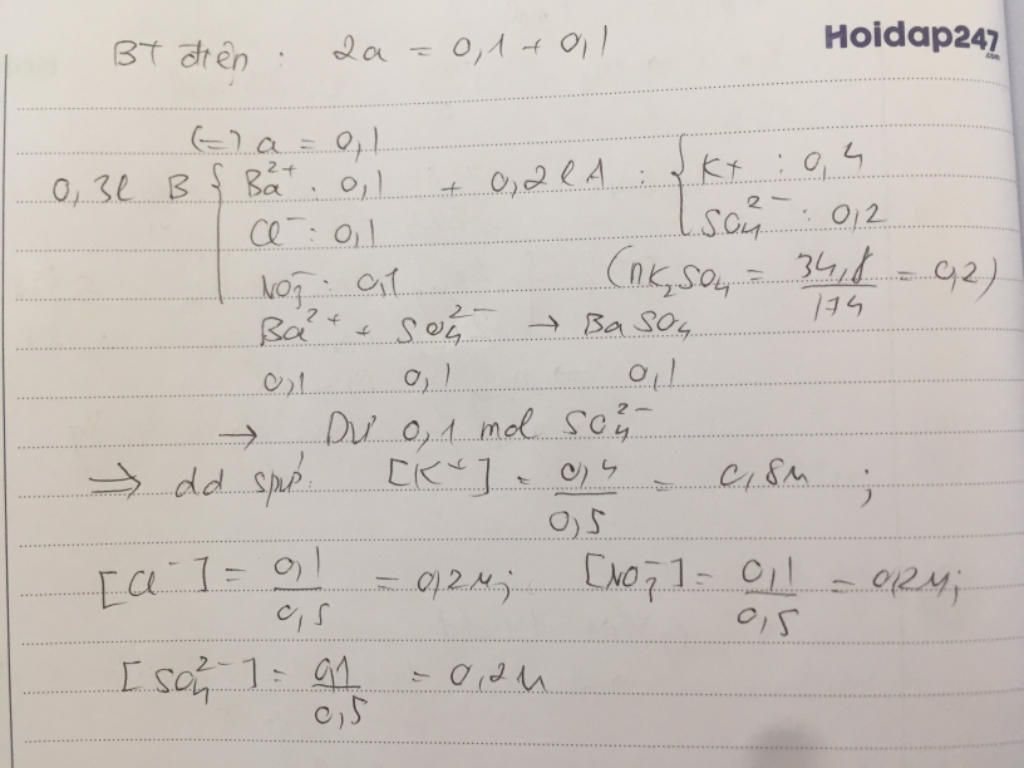 Hoidap247
.com
BT điện : 2a = 0,1 + 0,1
(=) a = 0,1
0,3l B { Ba²⁺ : 0,1 + 0,2l A : { K+ : 0,4
Cl⁻ : 0,1 SO₄²⁻ : 0,2
NO₃⁻ : 0,1 (nK₂SO₄ = 34,8/174 = 0,2)
Ba²⁺ + SO₄²⁻ → BaSO₄
0,1 0,1 0,1
→ Dư 0,1 mol SO₄²⁻
⇒ dd spứ : [K⁺] = 0,4/0,5 = 0,8M ;
[Cl⁻] = 0,1/0,5 = 0,2M; [NO₃⁻] = 0,1/0,5 = 0,2M;
[SO₄²⁻] = 0,1/0,5 = 0,2M